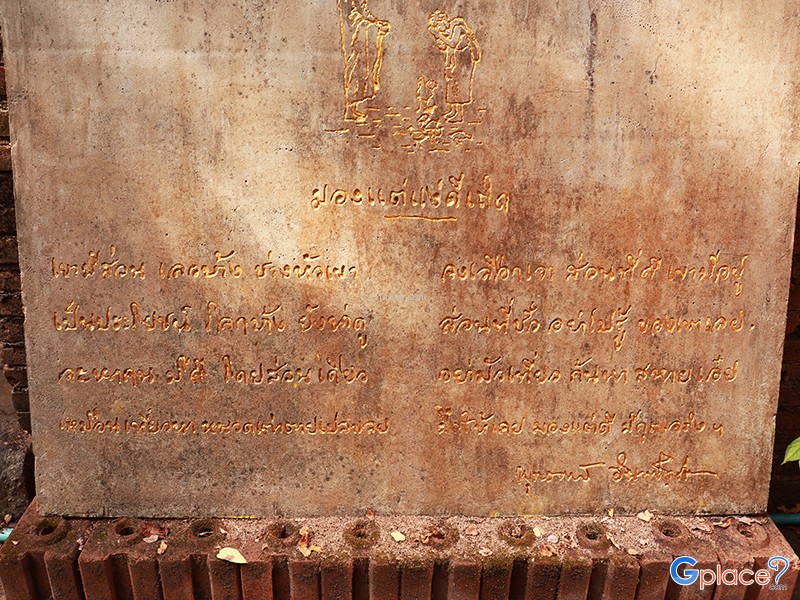 มองแต่แง่ดีเถิด
เขามีส่วน เลวบ้าง ช่างหัวเขา จงเลือกเอา ส่วนที่ดี เขามีอยู่
เป็นประโยชน์ โลกบ้าง ยังน่าดู ส่วนที่ชั่ว อย่าไปรู้ ของเขาเลย.
จะหาคน มีดี โดยส่วนเดียว อย่ามัวเที่ยว ค้นหา สหายเอ๋ย
เหมือนเที่ยวหา หนวดเต่าตายเปล่าเลย ฝึกให้เคย มองแต่ดี มีคุณจริง ฯ
พุทธทาส อินทปัญโญ
Gplace?.com